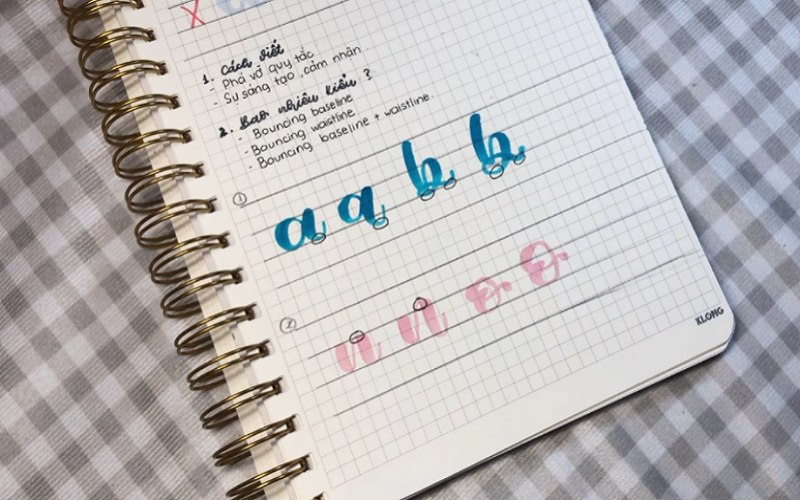 X
1. Cách viết
- Phá vỡ quy tắc
- Sự sáng tạo, cảm nhận
2. Bao nhiêu kiểu ?
- Bouncing baseline
- Bouncing waistline
- Bouncing baseline + waistline.
1
a a b b
2
n n o o
KLONG